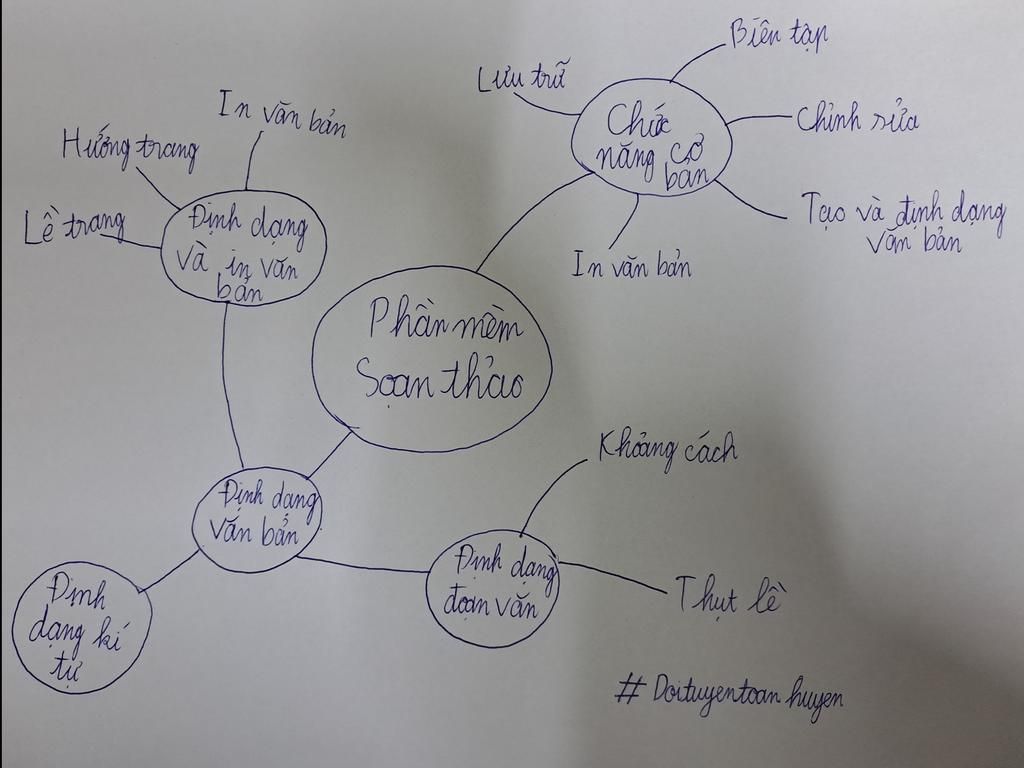 Biên tập
Lưu trữ
Chức
năng cơ
bản
Chỉnh sửa
Tạo và định dạng
văn bản
In văn bản
In văn bản
Hướng trang
Lề trang
Định dạng
và in văn
bản
Phần mềm
Soạn thảo
Định dạng
văn bản
Khoảng cách
Định dạng
đoạn văn
Thụt lề
Định
dạng kí
tự
# Doituyentoanhuyen